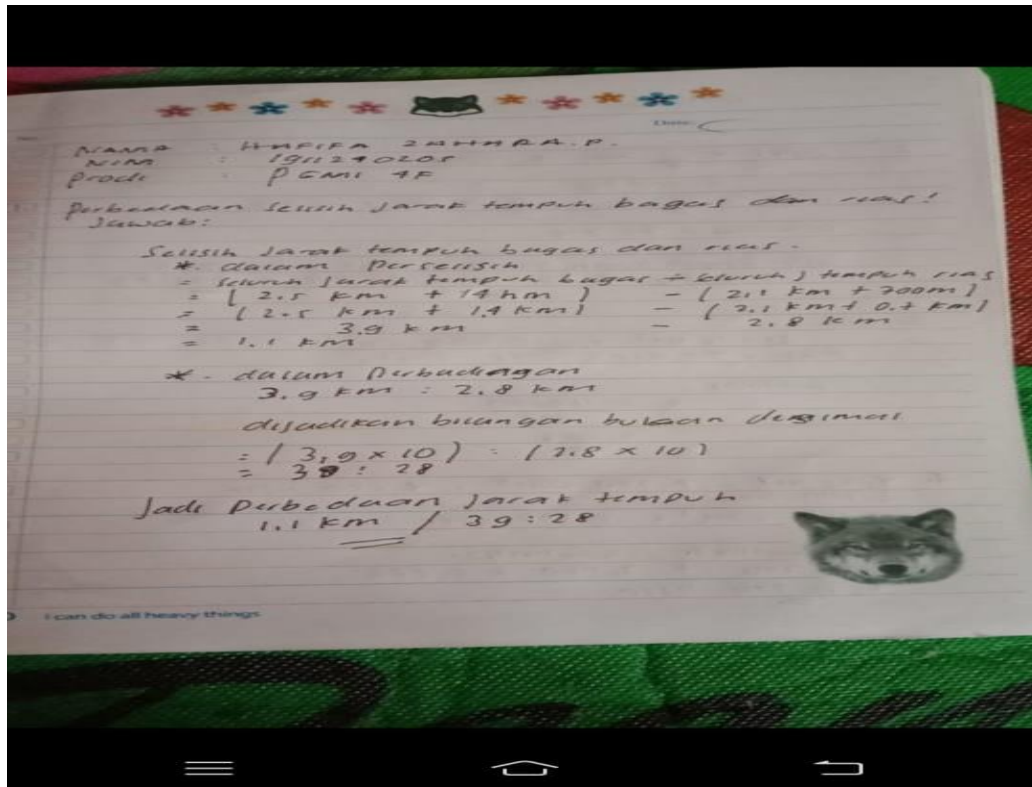 Date:
NAMA : HAFIFA ZAHARA.P.
NIM : 1911290205
Prodi : PGMI 4F
Perbedaan selisih Jarak tempuh bagas dan rias!
Jawab:
Selisih Jarak tempuh bagas dan rias.
*. dalam Perselisih
= seluruh Jarak tempuh bagas - seluruh J tempuh rias
= (2.5 km + 14 hm) - (2,1 km + 700m)
= (2.5 km + 1.4 km) - (2.1 km + 0.7 km)
= 3.9 km - 2.8 km
= 1.1 km
*. dalam Perbadingan
3.9 km : 2.8 km
disadikan bilangan bulaan desimal
= (3,9 × 10) : (2.8 × 10)
= 39 : 28
Jadi Perbedaan Jarak tempuh
1.1 km / 39:28
I can do all heavy things